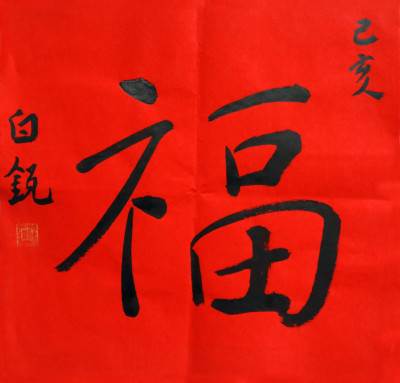 己亥
福
白鈨